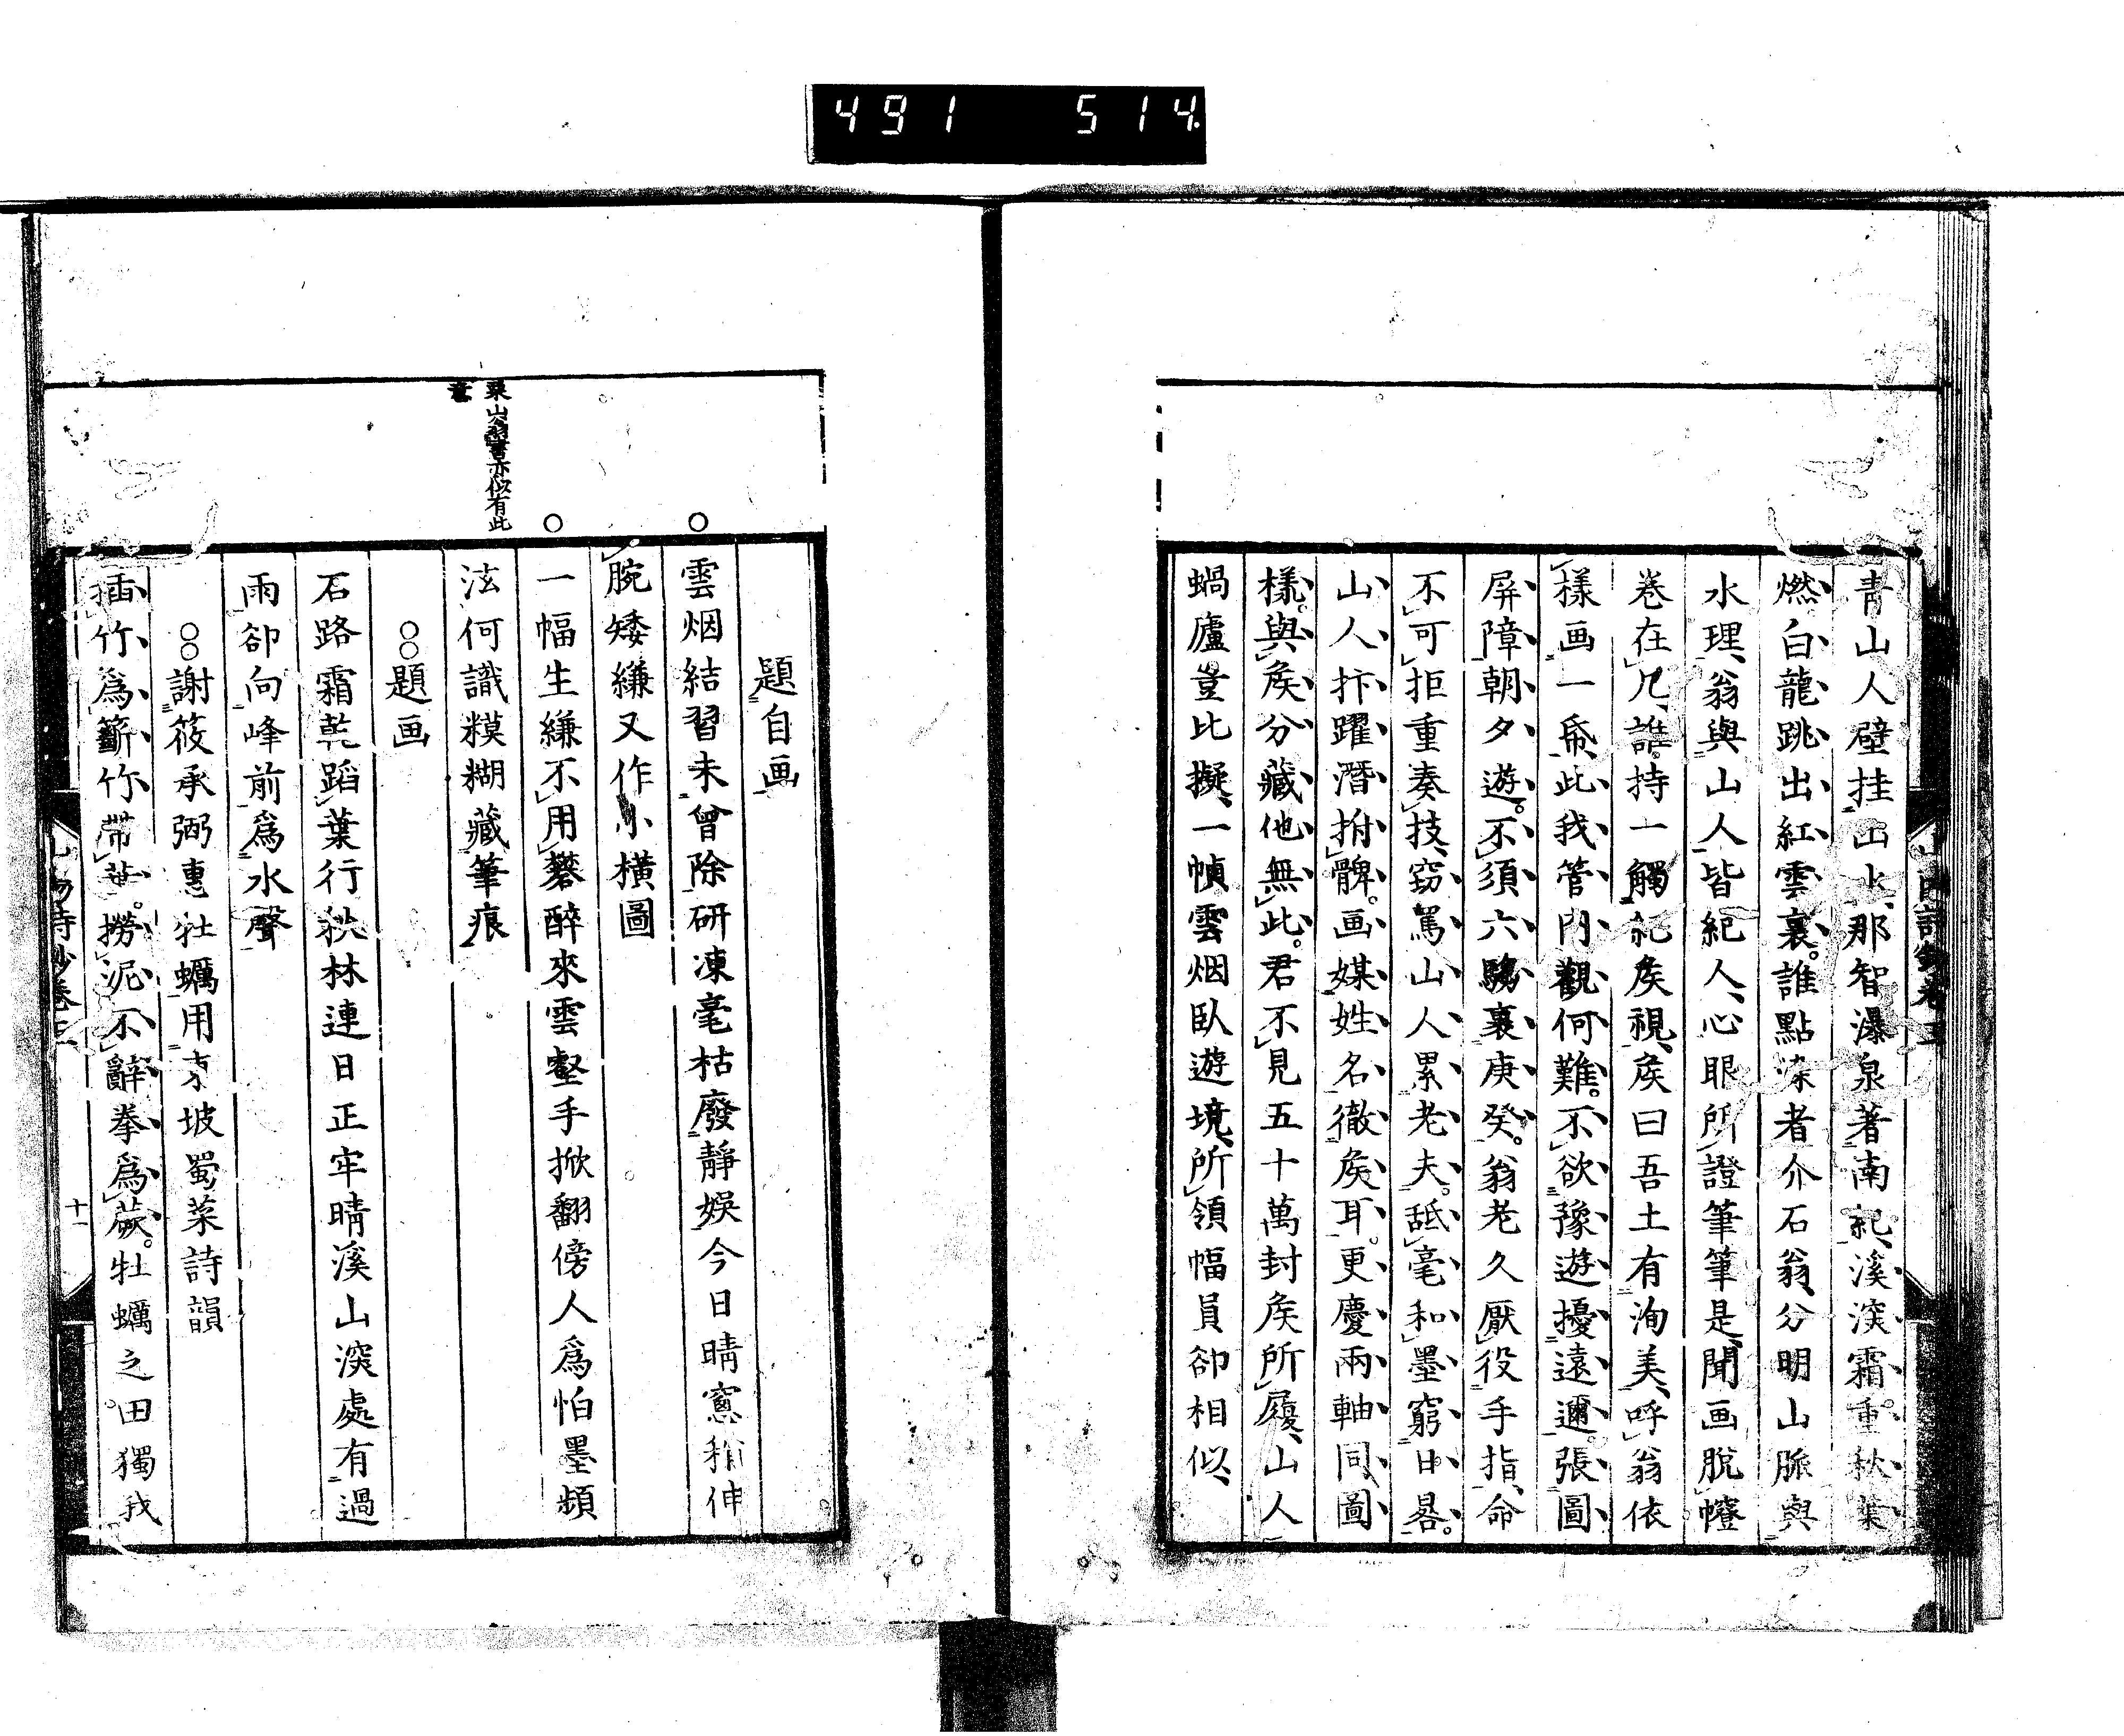 491 514
青山人壁挂山水那智瀑泉著南紀溪深霜重秋葉
燃白龍跳出紅雲裏誰點染者介石翁分明山脈與
水理翁與山人皆紀人心眼所證筆筆是聞画脫幢
巻在几誰持一觸紀矦視矦曰吾土有洵美呼翁依
樣画一帋此我管內觀何難不欲豫遊擾遠邇張圖
屏障朝夕遊不須六騶裏庚癸翁老久厭役手指命
不可拒重奏技窃罵山人累老夫舐毫和墨窮日晷
山人抃躍潛拊髀画媒姓名徹矦耳更慶兩軸同圖
樣與矦分藏他無此君不見五十萬封矦所履山人
蝸廬豈比擬一幀雲烟臥遊境所領幅員卻相似
題自画
雲烟結習未曾除研凍毫枯廢靜娛今日晴窻稍伸
腕矮縑又作小橫圖
一幅生縑不用礬醉來雲壑手掀翻傍人為怕墨頻
泫何識糢糊藏筆痕
〇〇題画
石路霜乾蹈葉行秋林連日正牢晴溪山深處有過
雨卻向峰前為水聲
〇〇謝筱承弼惠牡蠣用東坡蜀菜詩韻
插竹為籪竹帶葉撈泥不辭拳為蕨牡蠣之田獨我
亦似有此
意
十一